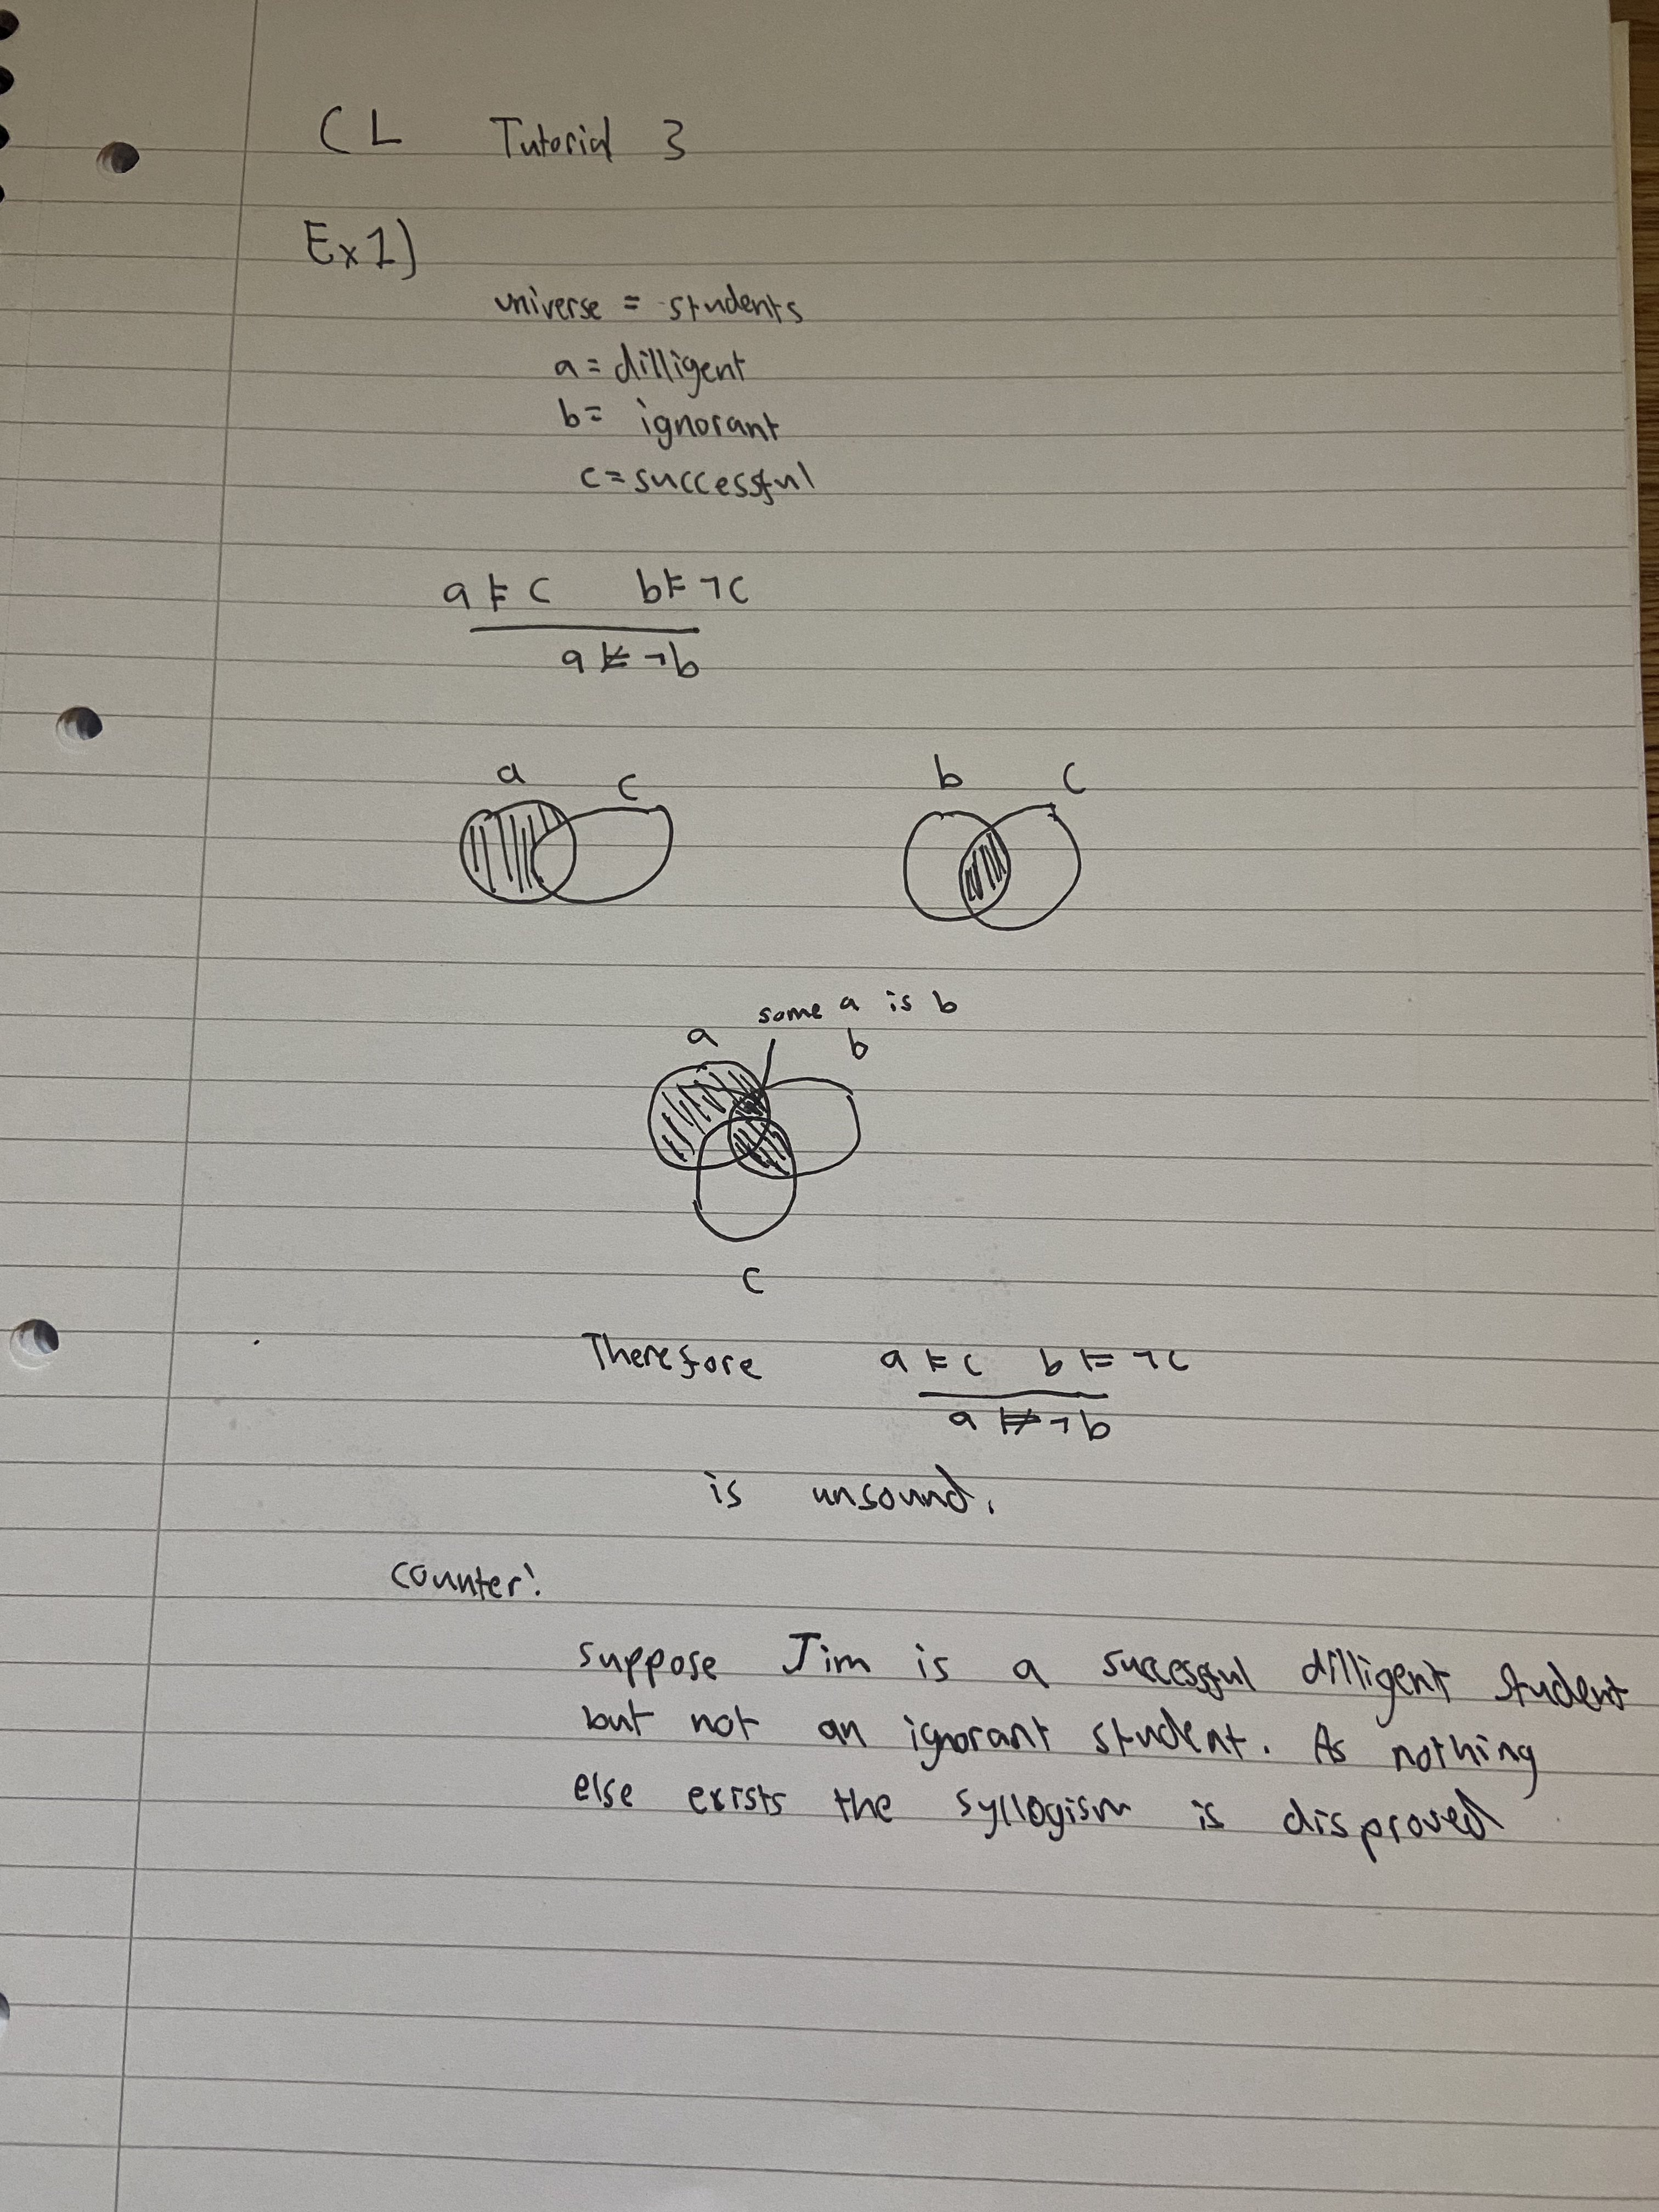 CL Tutorial 3
Ex1)
universe = students
a = dilligent
b = ignorant
c = successful
a ⊨ c b ⊨ ¬c
a ⊭ ¬b
a c b c
some a is b
a b
c
Therefore a ⊨ c b ⊨ ¬c
a ⊭ ¬b
is unsound.
counter:
suppose Jim is a successful dilligent student
but not an ignorant student. As nothing
else exists the syllogism is disproved